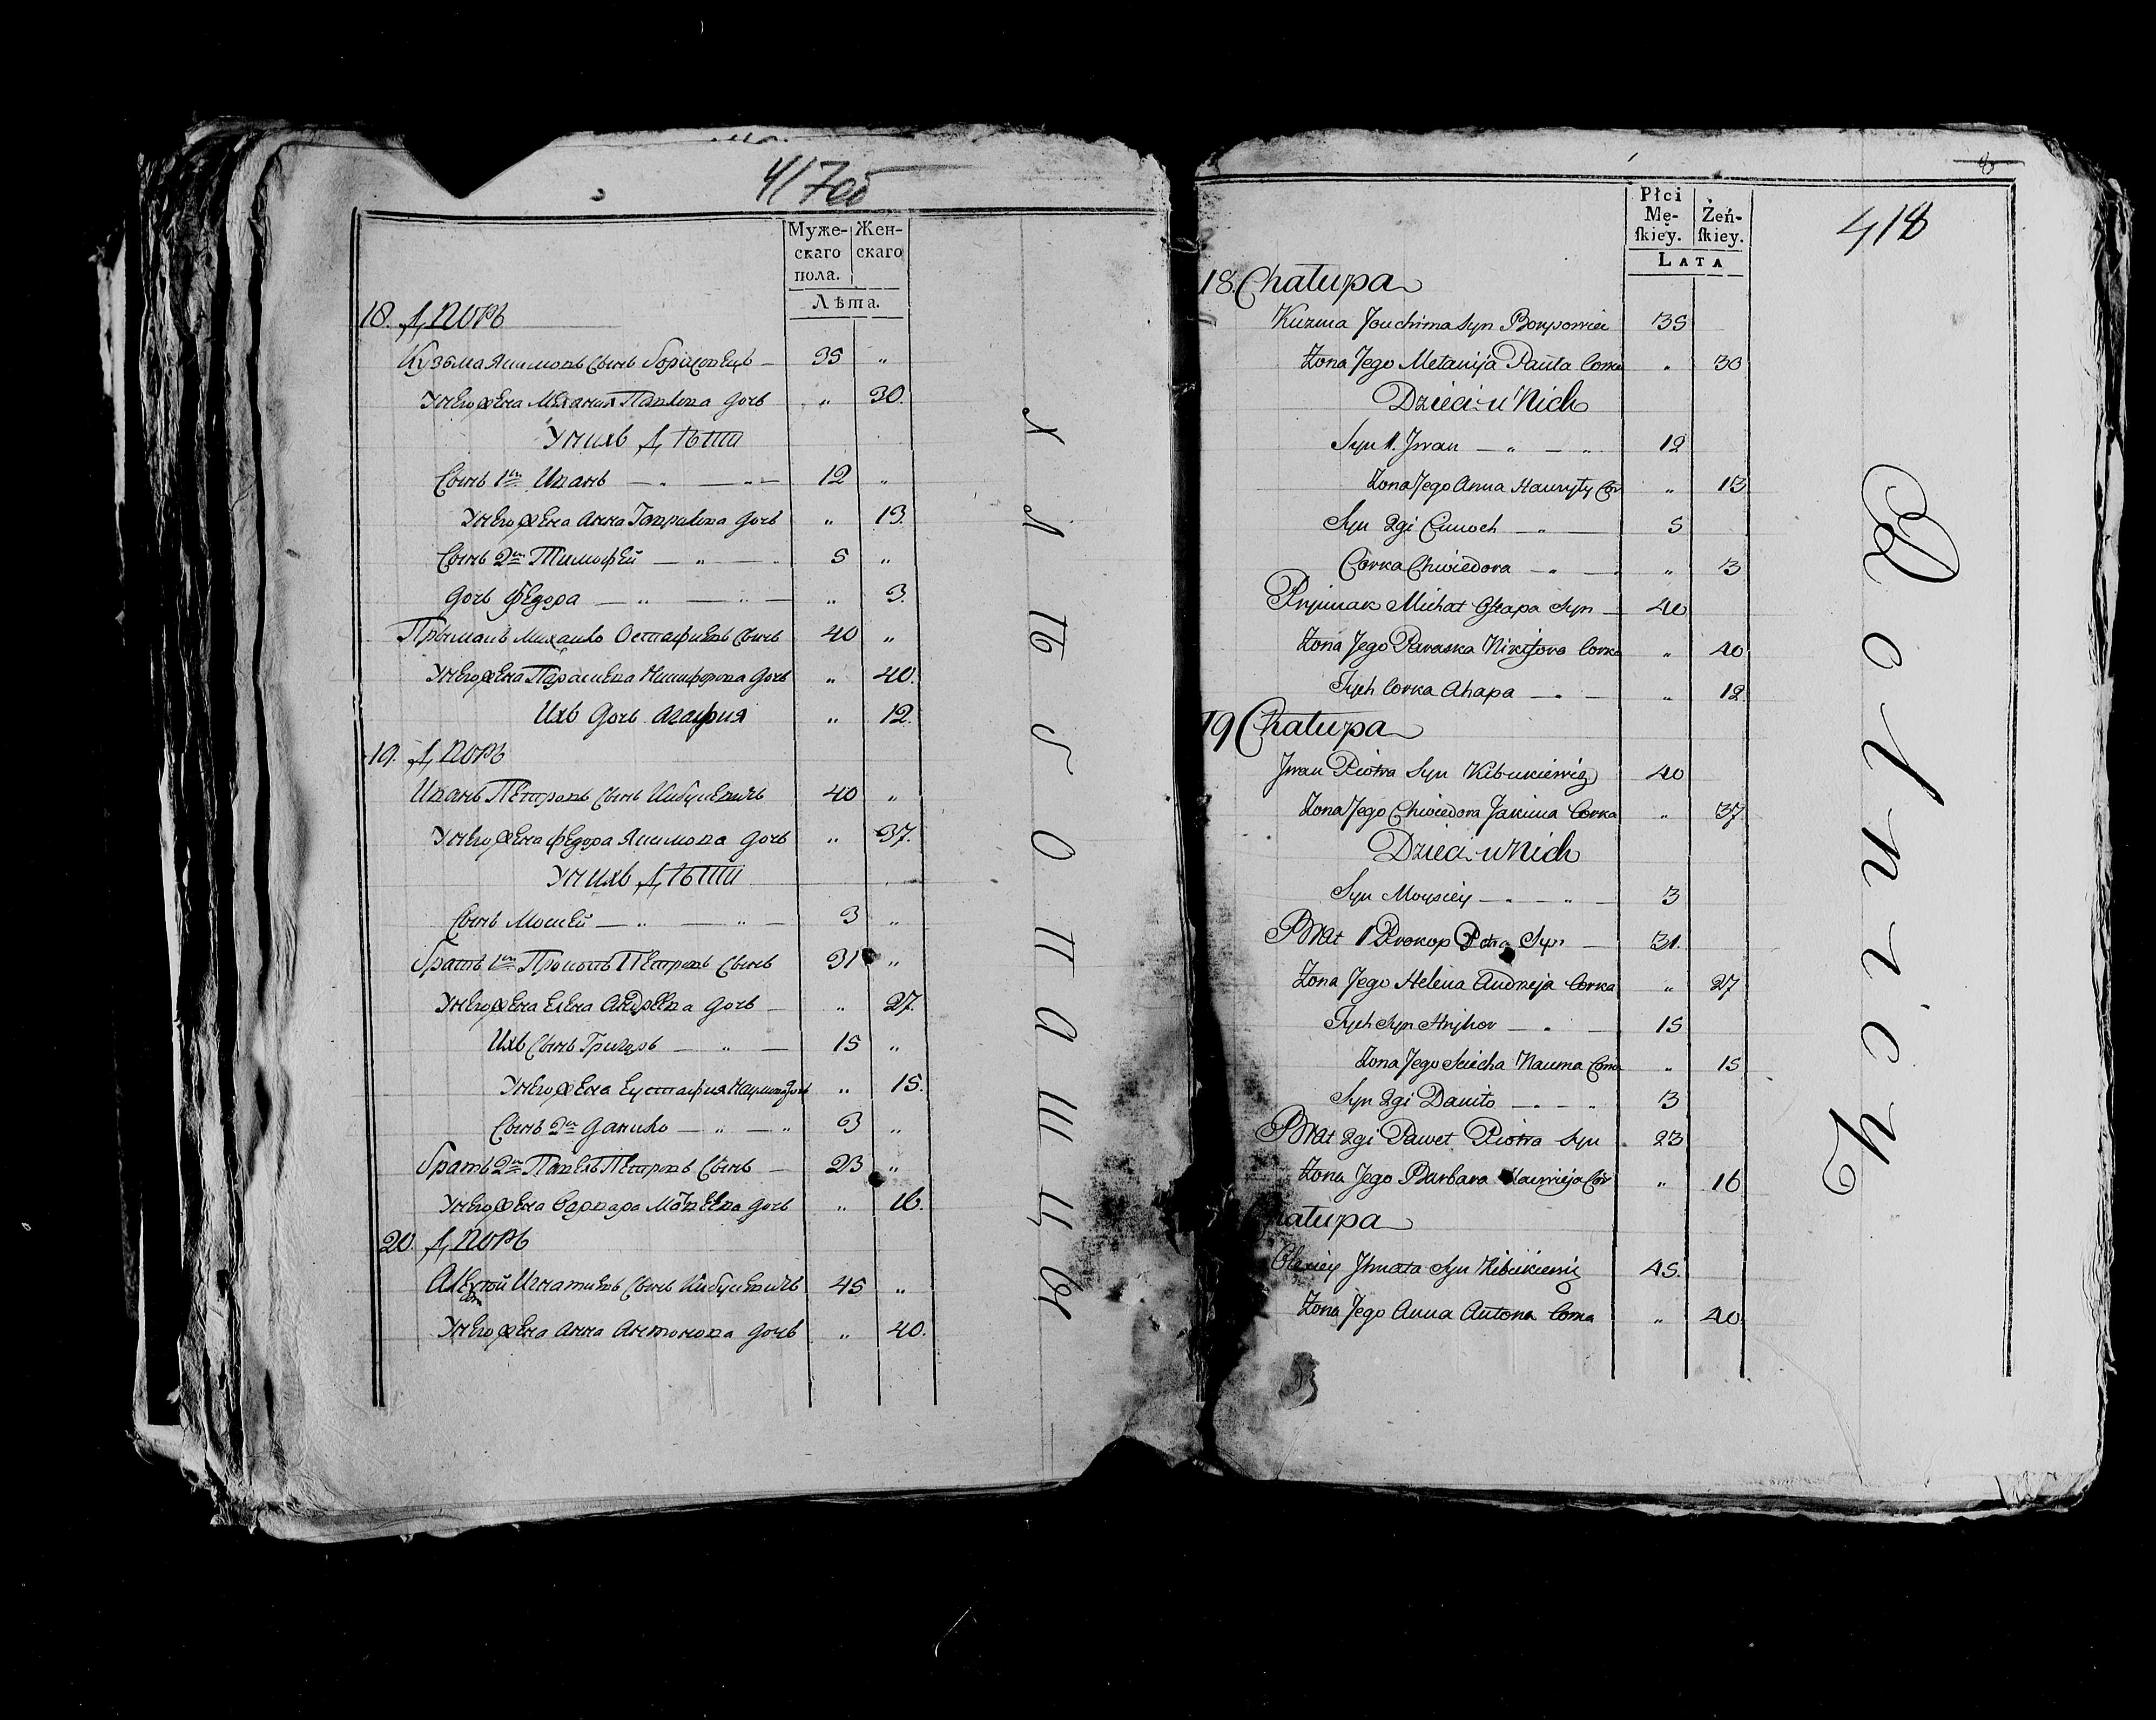 417об
Муже-
скаго
пола.
Жен-
скаго
Лѣта.
18. Дворъ
Кузьма Якимовъ Сынъ Борисовецъ — 35 „
У него жена Мелания Павлова дочь „ 30.
У нихъ Дѣти
Сынъ 1й Иванъ — „ — „ — 12 „
У него жена Анна Гаврилова дочь „ 13.
Сынъ 2й Тимофей — „ — „ 5 „
Дочь Федора — „ — „ — „ 3.
Прымакъ Михайло Остафиевъ Сынъ 40 „
У него жена Парасквва Никифорова дочь „ 40.
Ихъ Дочь Агафия „ 12.
19. Дворъ
Иванъ Петровъ Сынъ Кибукевичъ 40 „
У него жена Федора Якимова дочь „ 37.
У нихъ Дѣти
Сынъ Мосей — „ — „ — 3 „
Братъ 1й Прокопъ Петровъ Сынъ 31 „
У него жена Елена Андреева дочь — „ 27.
Ихъ Сынъ Григоръ — „ — 15 „
У него жена Еустафия Наумова дочь „ 15.
Сынъ 2й Данило — „ — „ 3 „
Братъ 2й Павелъ Петровъ Сынъ — 23 „
У него жена Варвара Матвеева дочь „ 16.
20. Дворъ
Алексей Игнатиевъ Сынъ Кибукевичъ 45 „
У него жена Анна Антонова дочь „ 40.
Хлѣбопашцы
8
418
Płci
Mę-
skiey.
Żeń-
skiey.
LATA
18. Chałupa
Kuzma Jouchima Syn 35
Żona Jego Melanija Pauła Corka „ 30
Dzieci u Nich
Syn 1. Jwan — „ — „ 12
Żona Jego Anna Hauryły Cor „ 13
Syn 2gi Cimoch — „ — 5
Corka Chwiedora — „ — „ 3
Pryimak Michał Syn — 40
Żona Jego Paraska Nikifora Corka „ 40
Tych Corka Ahapa — „ — „ 12
19 Chałupa
Jwan Piotra Syn Kibukiewicz 40
Żona Jego Chwiedora Jakima Corka „ 37
Dzieci u Nich
Syn Moysiey — „ — „ — 3
Brat 1 Prokop Piotra Syn — 31.
Żona Jego Helena Andrieja Corka „ 27
Tych Syn Hryhor — „ — 15
Żona Jego Nauma Corka „ 15
Syn 2gi Daniło — „ — „ 3
Brat 2gi Paweł Piotra Syn 23
Żona Jego Barbara Cor „ 16
Chałupa
Olexiey Jhnata Syn Kibukiewicz 45.
Żona Jego Anna Antona Corka „ 40.
Rolnicy